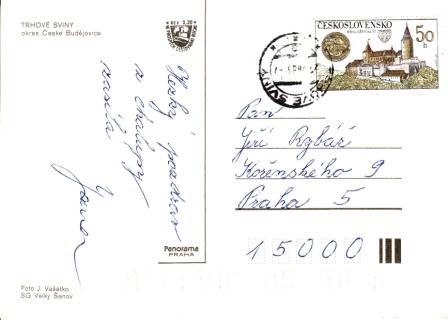 TRHOVÉ SVINY
okres České Budějovice
Kčs 3,30
ČESKOSLOVENSKO
50
h
Hezký pozdrav
z chalupy
zasílá
Pan
Jiří Rybář
Kořenského 9
Praha 5
15000
Panorama
PRAHA
Foto J. Vašátko
SG Velký Šenov